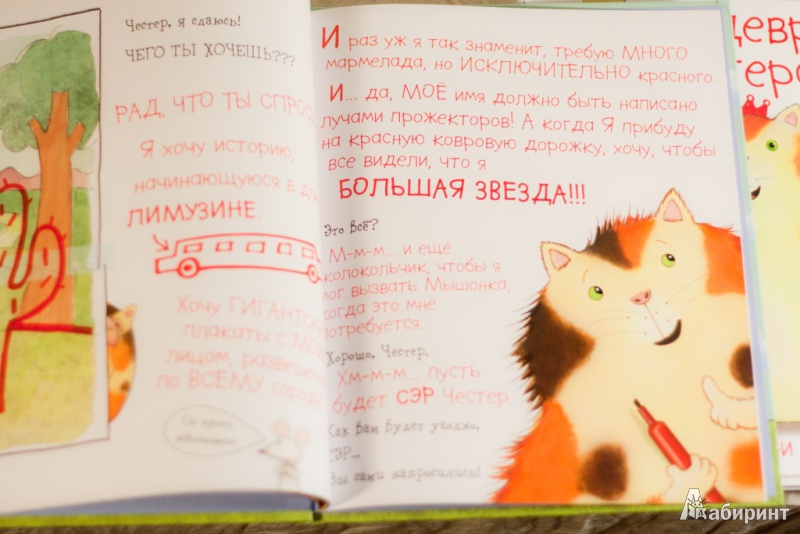 Честер, я сдаюсь!
ЧЕГО ТЫ ХОЧЕШЬ???
РАД, ЧТО ТЫ СПРОС
Я хочу историю,
начинающуюся в дл
ЛИМУЗИНЕ.
Хочу ГИГАНТСК
плакаты с МО
лицом, развеш
по ВСЕМУ город
Он просто
И раз уж я так знаменит, требую МНОГО
мармелада, но ИСКЛЮЧИТЕЛЬНО красного.
И... да, МОЁ имя должно быть написано
лучами прожекторов! А когда Я прибуду
на красную ковровую дорожку, хочу, чтобы
все видели, что я
БОЛЬШАЯ ЗВЕЗДА!!!
Это всё?
М-м-м... и ещё
колокольчик, чтобы я
мог вызвать Мышонка,
когда это мне
потребуется.
Хорошо, Честер.
Хм-м-м... пусть
будет СЭР Честер.
Как вам будет угодно,
СЭР...
Вы сами напросились!
Лабиринт